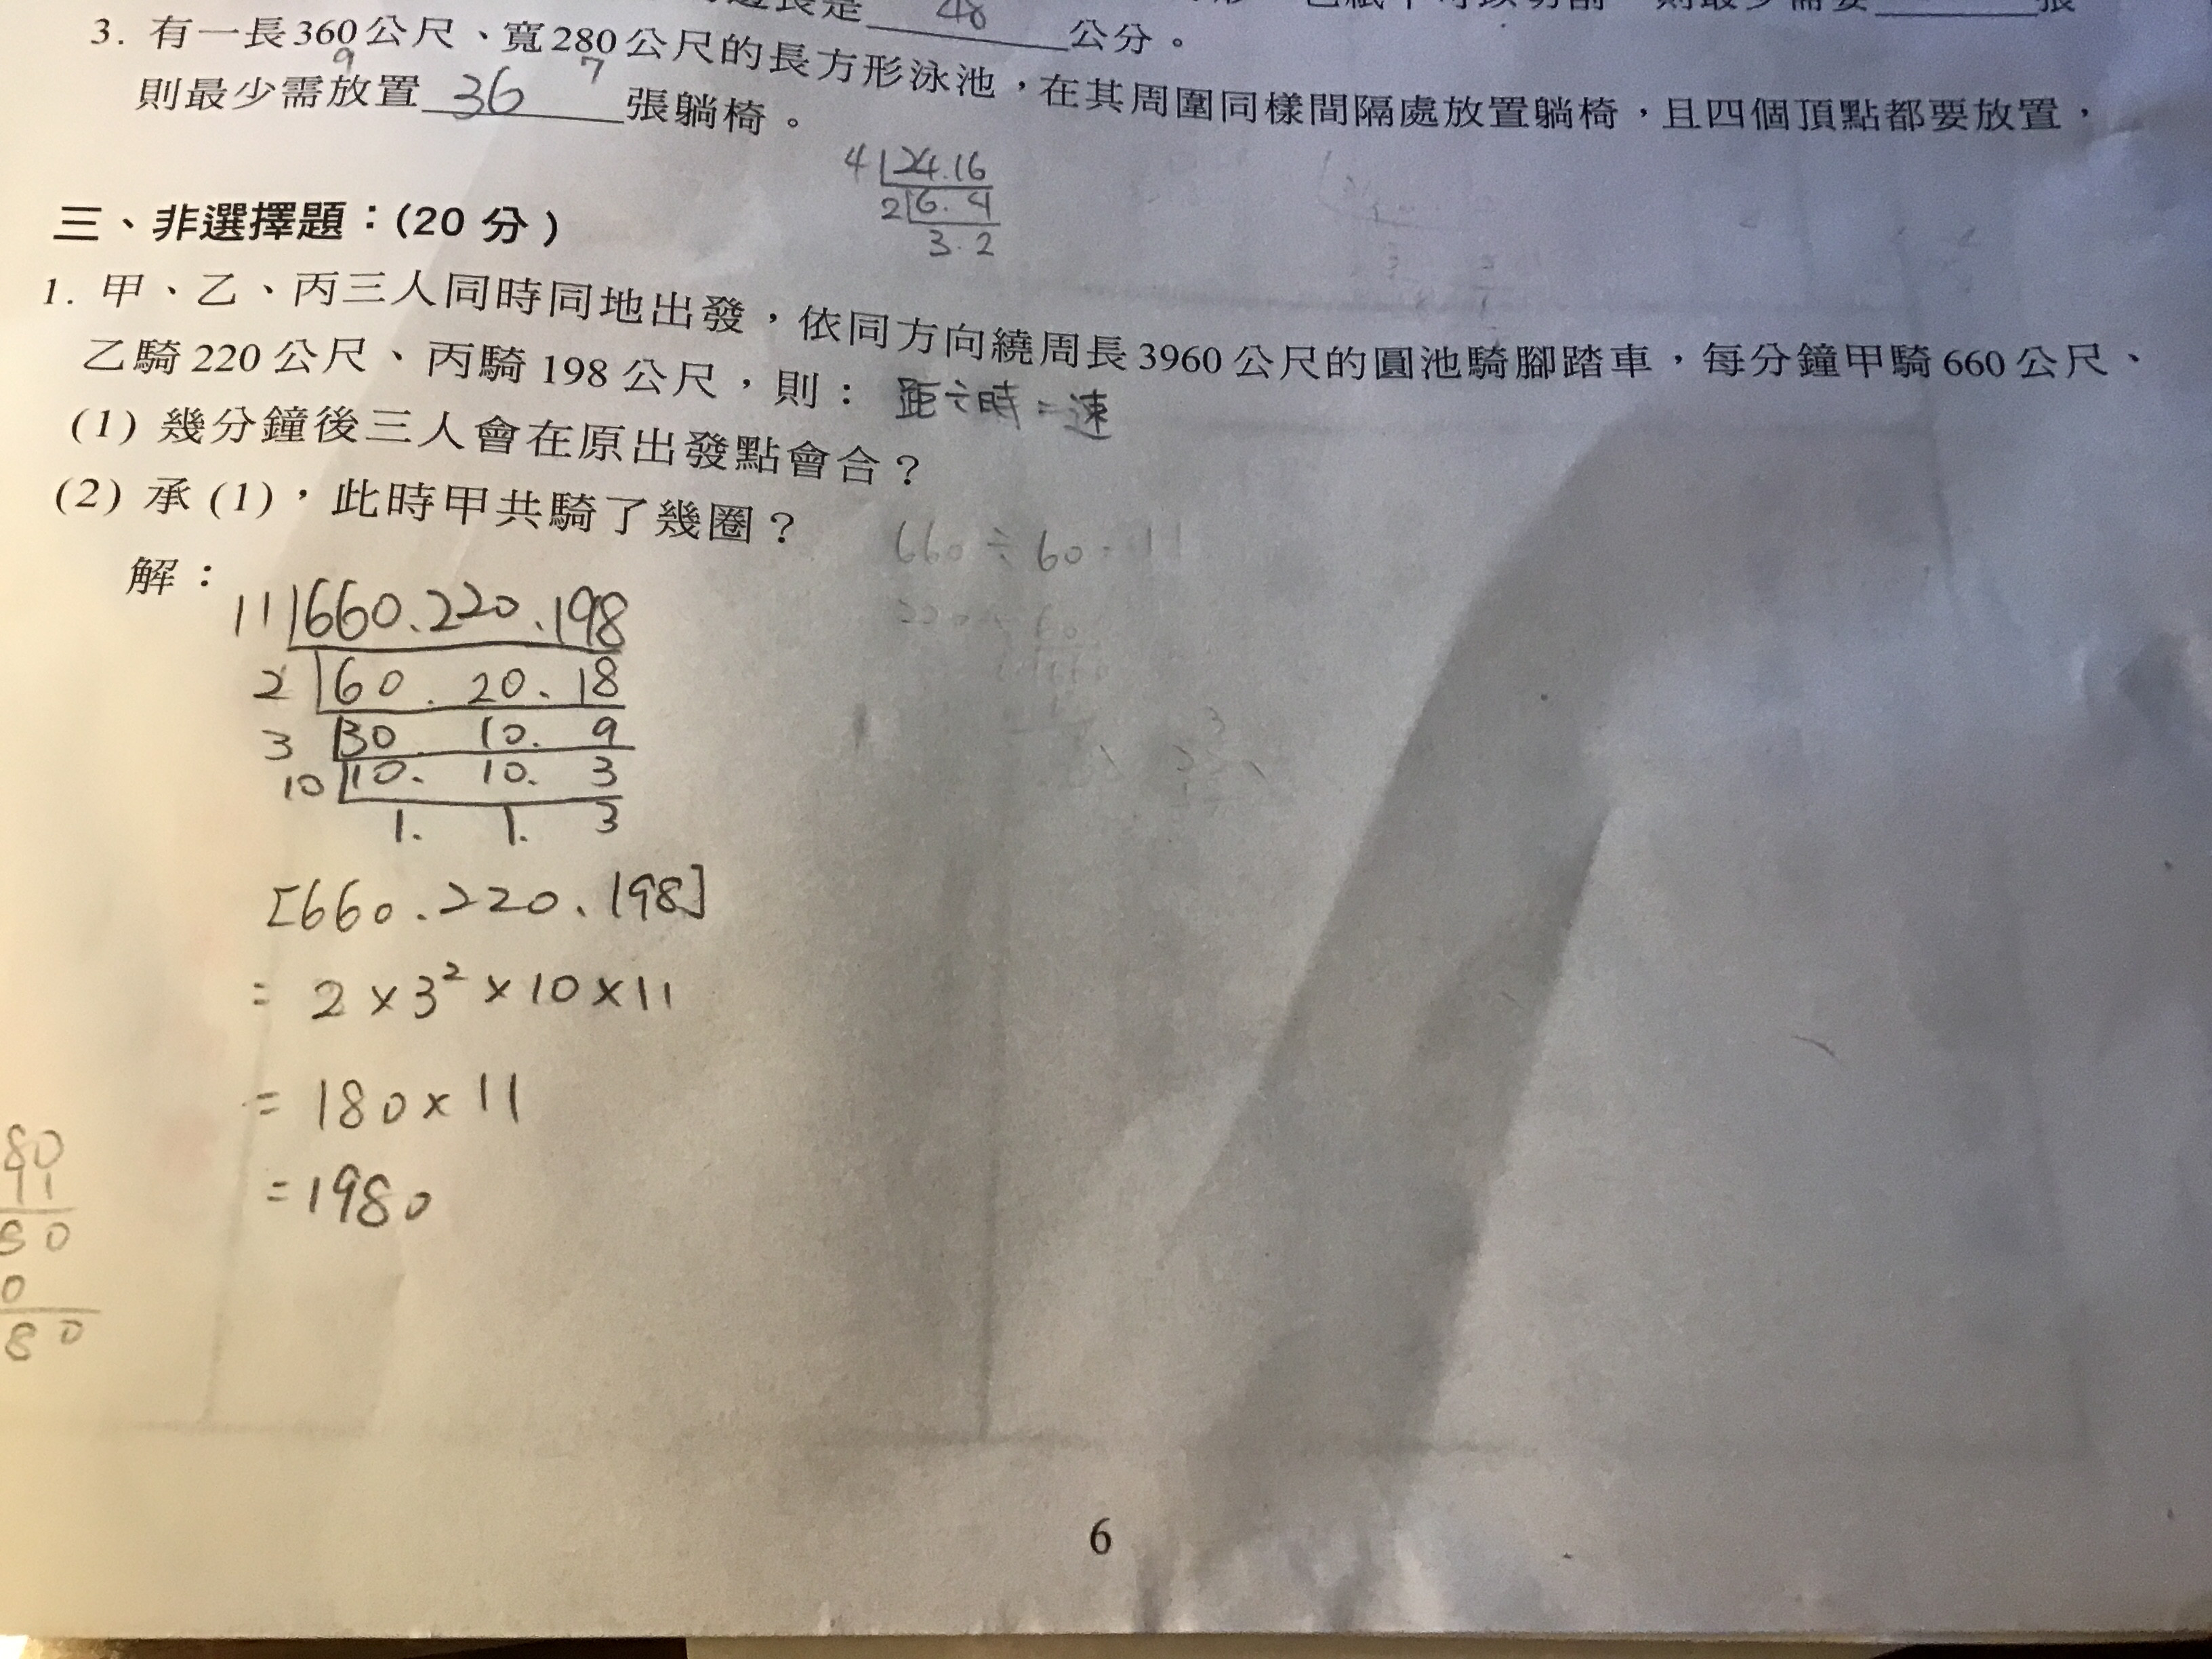 邊長是 48 公分。
3. 有一長360公尺、寬280公尺的長方形泳池，在其周圍同樣間隔處放置躺椅，且四個頂點都要放置，
9 7
則最少需放置 36 張躺椅。
4 24.16
2 6. 4
3. 2
三、非選擇題：(20 分)
1. 甲、乙、丙三人同時同地出發，依同方向繞周長3960公尺的圓池騎腳踏車，每分鐘甲騎660公尺、
乙騎220公尺、丙騎198公尺，則： 距÷時=速
(1) 幾分鐘後三人會在原出發點會合？
(2) 承(1)，此時甲共騎了幾圈？
660 ÷ 60 = 11
解：
11 660.220.198
2 60. 20. 18
3 30. 10. 9
10 10. 10. 3
1. 1. 3
[660.220.198]
= 2×3²×10×11
= 180×11
=1980
80
11
80
0
80
6